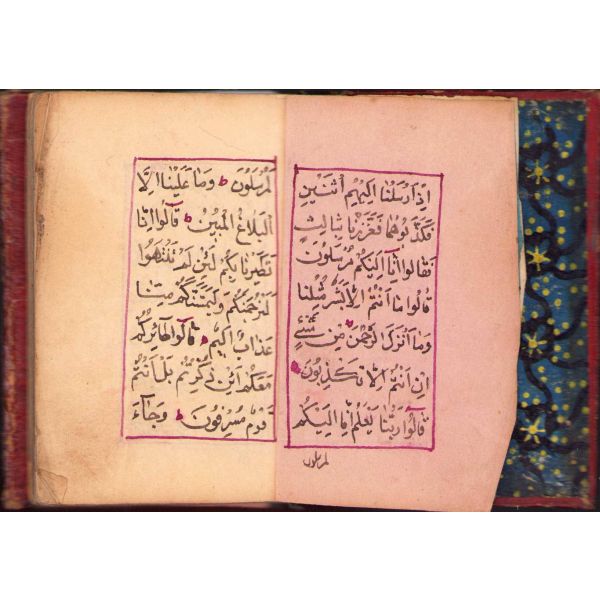 اِذْ اَرْسَلْنَا اِلَيْهِمُ اثْنَيْنِ
فَكَذَّبُوهُمَا فَعَزَّزْنَا بِثَالِثٍ
فَقَالُوا اِنَّا اِلَيْكُمْ مُرْسَلُونَ
قَالُوا مَا اَنْتُمْ اِلَّا بَشَرٌ مِثْلُنَا
وَمَا اَنْزَلَ الرَّحْمٰنُ مِنْ شَيْءٍ
اِنْ اَنْتُمْ اِلَّا تَكْذِبُونَ
قَالُوا رَبُّنَا يَعْلَمُ اِنَّا اِلَيْكُمْ
لمرسلون
لَمُرْسَلُونَ وَمَا عَلَيْنَا اِلَّا
الْبَلَاغُ الْمُبِينُ قَالُوا اِنَّا
تَطَيَّرْنَا بِكُمْ لَئِنْ لَمْ تَنْتَهُوا
لَنَرْجُمَنَّكُمْ وَلَيَمَسَّنَّكُمْ مِنَّا
عَذَابٌ اَلِيمٌ قَالُوا طَائِرُكُمْ
مَعَكُمْ اَئِنْ ذُكِّرْتُمْ بَلْ اَنْتُمْ
قَوْمٌ مُسْرِفُونَ وَجَاءَ